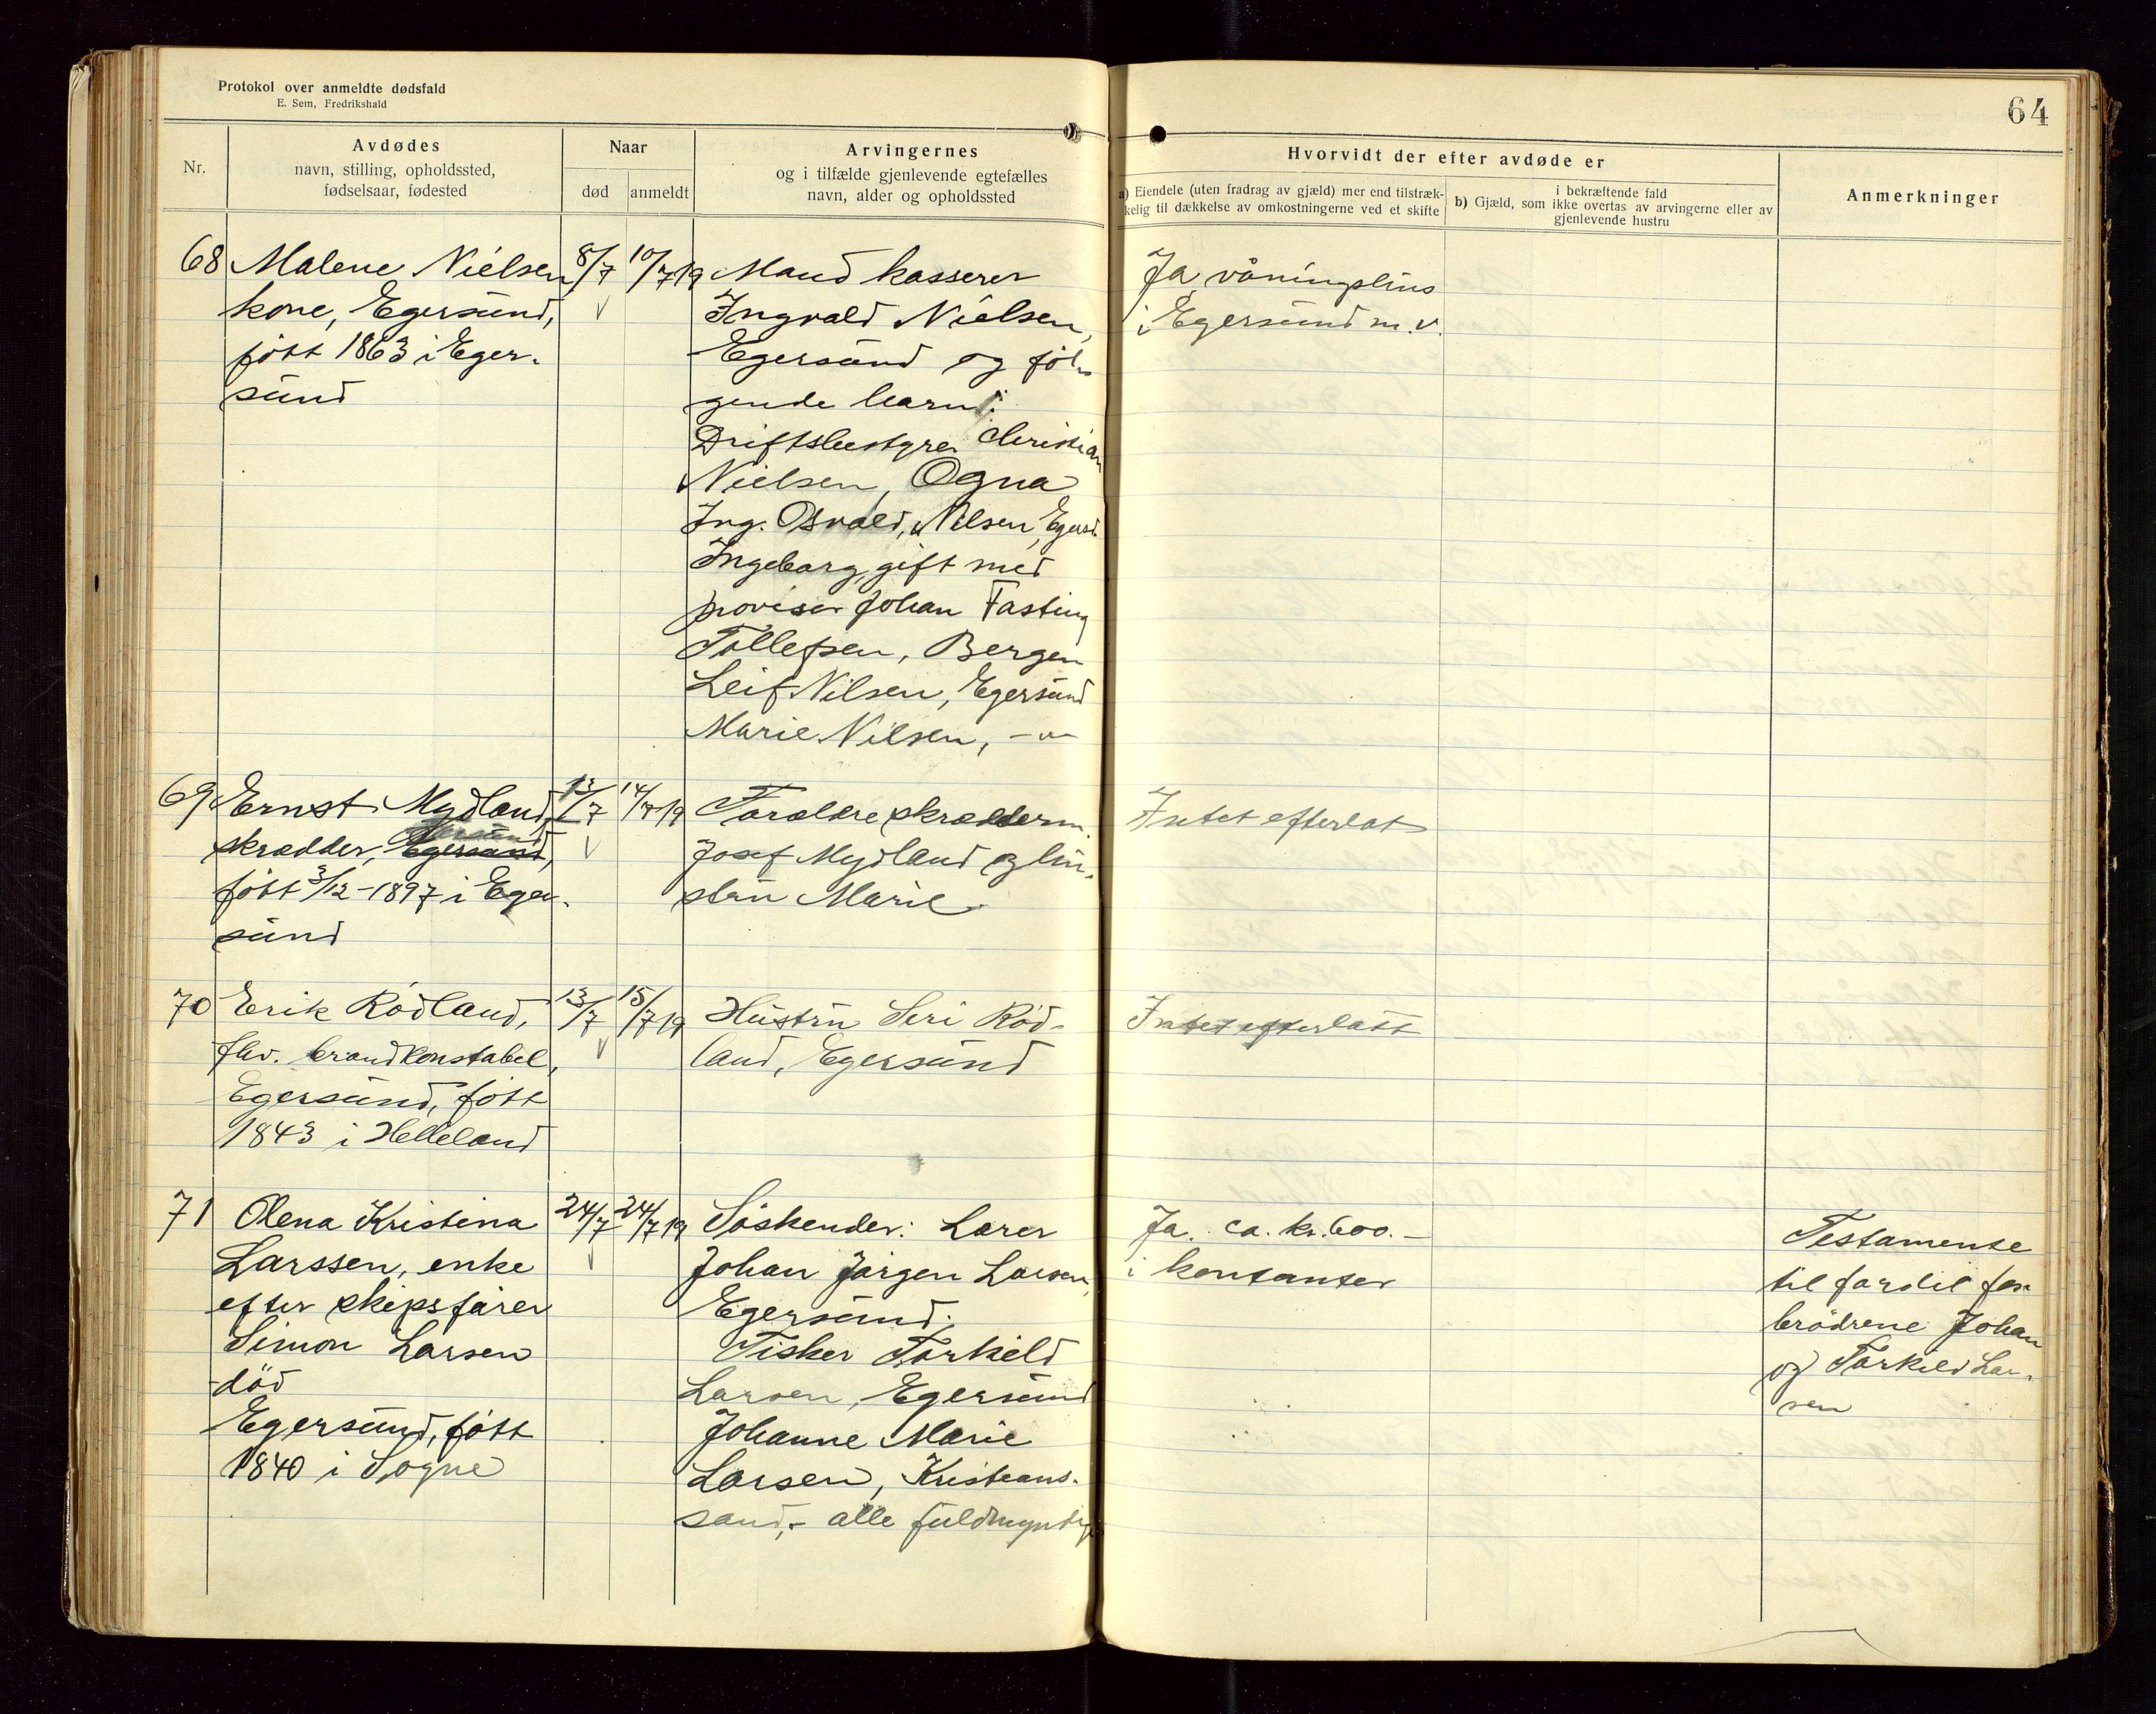 Protokol over anmeldte dødsfald
E. Sem, Fredrikshald
64
Nr.
Avdødes
navn, stilling, opholdssted,
fødselsaar, fødested
Naar
død
anmeldt
Arvingernes
og i tilfælde gjenlevende egtefælles
navn, alder og opholdssted
Hvorvidt der efter avdøde er
a) Eiendele (uten fradrag av gjæld) mer end tilstræk-
kelig til dækkelse av omkostningerne ved et skifte
i bekræftende fald
b) Gjæld, som ikke overtas av arvingerne eller av
gjenlevende hustru
Anmerkninger
68
Malene Nielsen
kone, Egersund,
født 1863 i Eger-
sund
8/7
10/7 19
Mand kasserer
Ingvald Nielsen,
Egersund og føl-
gende barn:
Driftsbestyrer Christian
Nielsen, Ogna
Ing. Osvald, Nilsen, Egersd.
Ingeborg, gift med
provisor Johan Fasting
Tollefsen, Bergen
Leif Nilsen, Egersund
Marie Nilsen, - " -
Ja, våningshus
i Egersund m. v.
69
Ernst Mydland,
skrædder, Egersund,
født 3/12-1897 i Eger-
sund
13/7
14/7 19
Forældre skrædderm.
Josef Mydland og hu-
stru Marie
Intet efterlat
70
Erik Rødland,
fhv. brandkonstabel,
Egersund, født
1843 i Helleland
13/7
15/7 19
Hustru Seri Rød-
land, Egersund
Intet efterlatt
71
Olena Kristina
Larssen, enke
efter skipsfører
Simon Larsen
død
Egersund, født
1840 i Søgne
24/7
24/7 19
Søskender: Lærer
Johan Jørgen Larsen,
Egersund,
Fisker Torkild
Larsen, Egersund
Johanne Marie
Larsen, Kristians-
sand, - alle fuldmyndige
Ja. ca. kr. 600.-
i kontanter
Testamente
til fordel for
brødrene Johan
og Torkild Lar-
sen